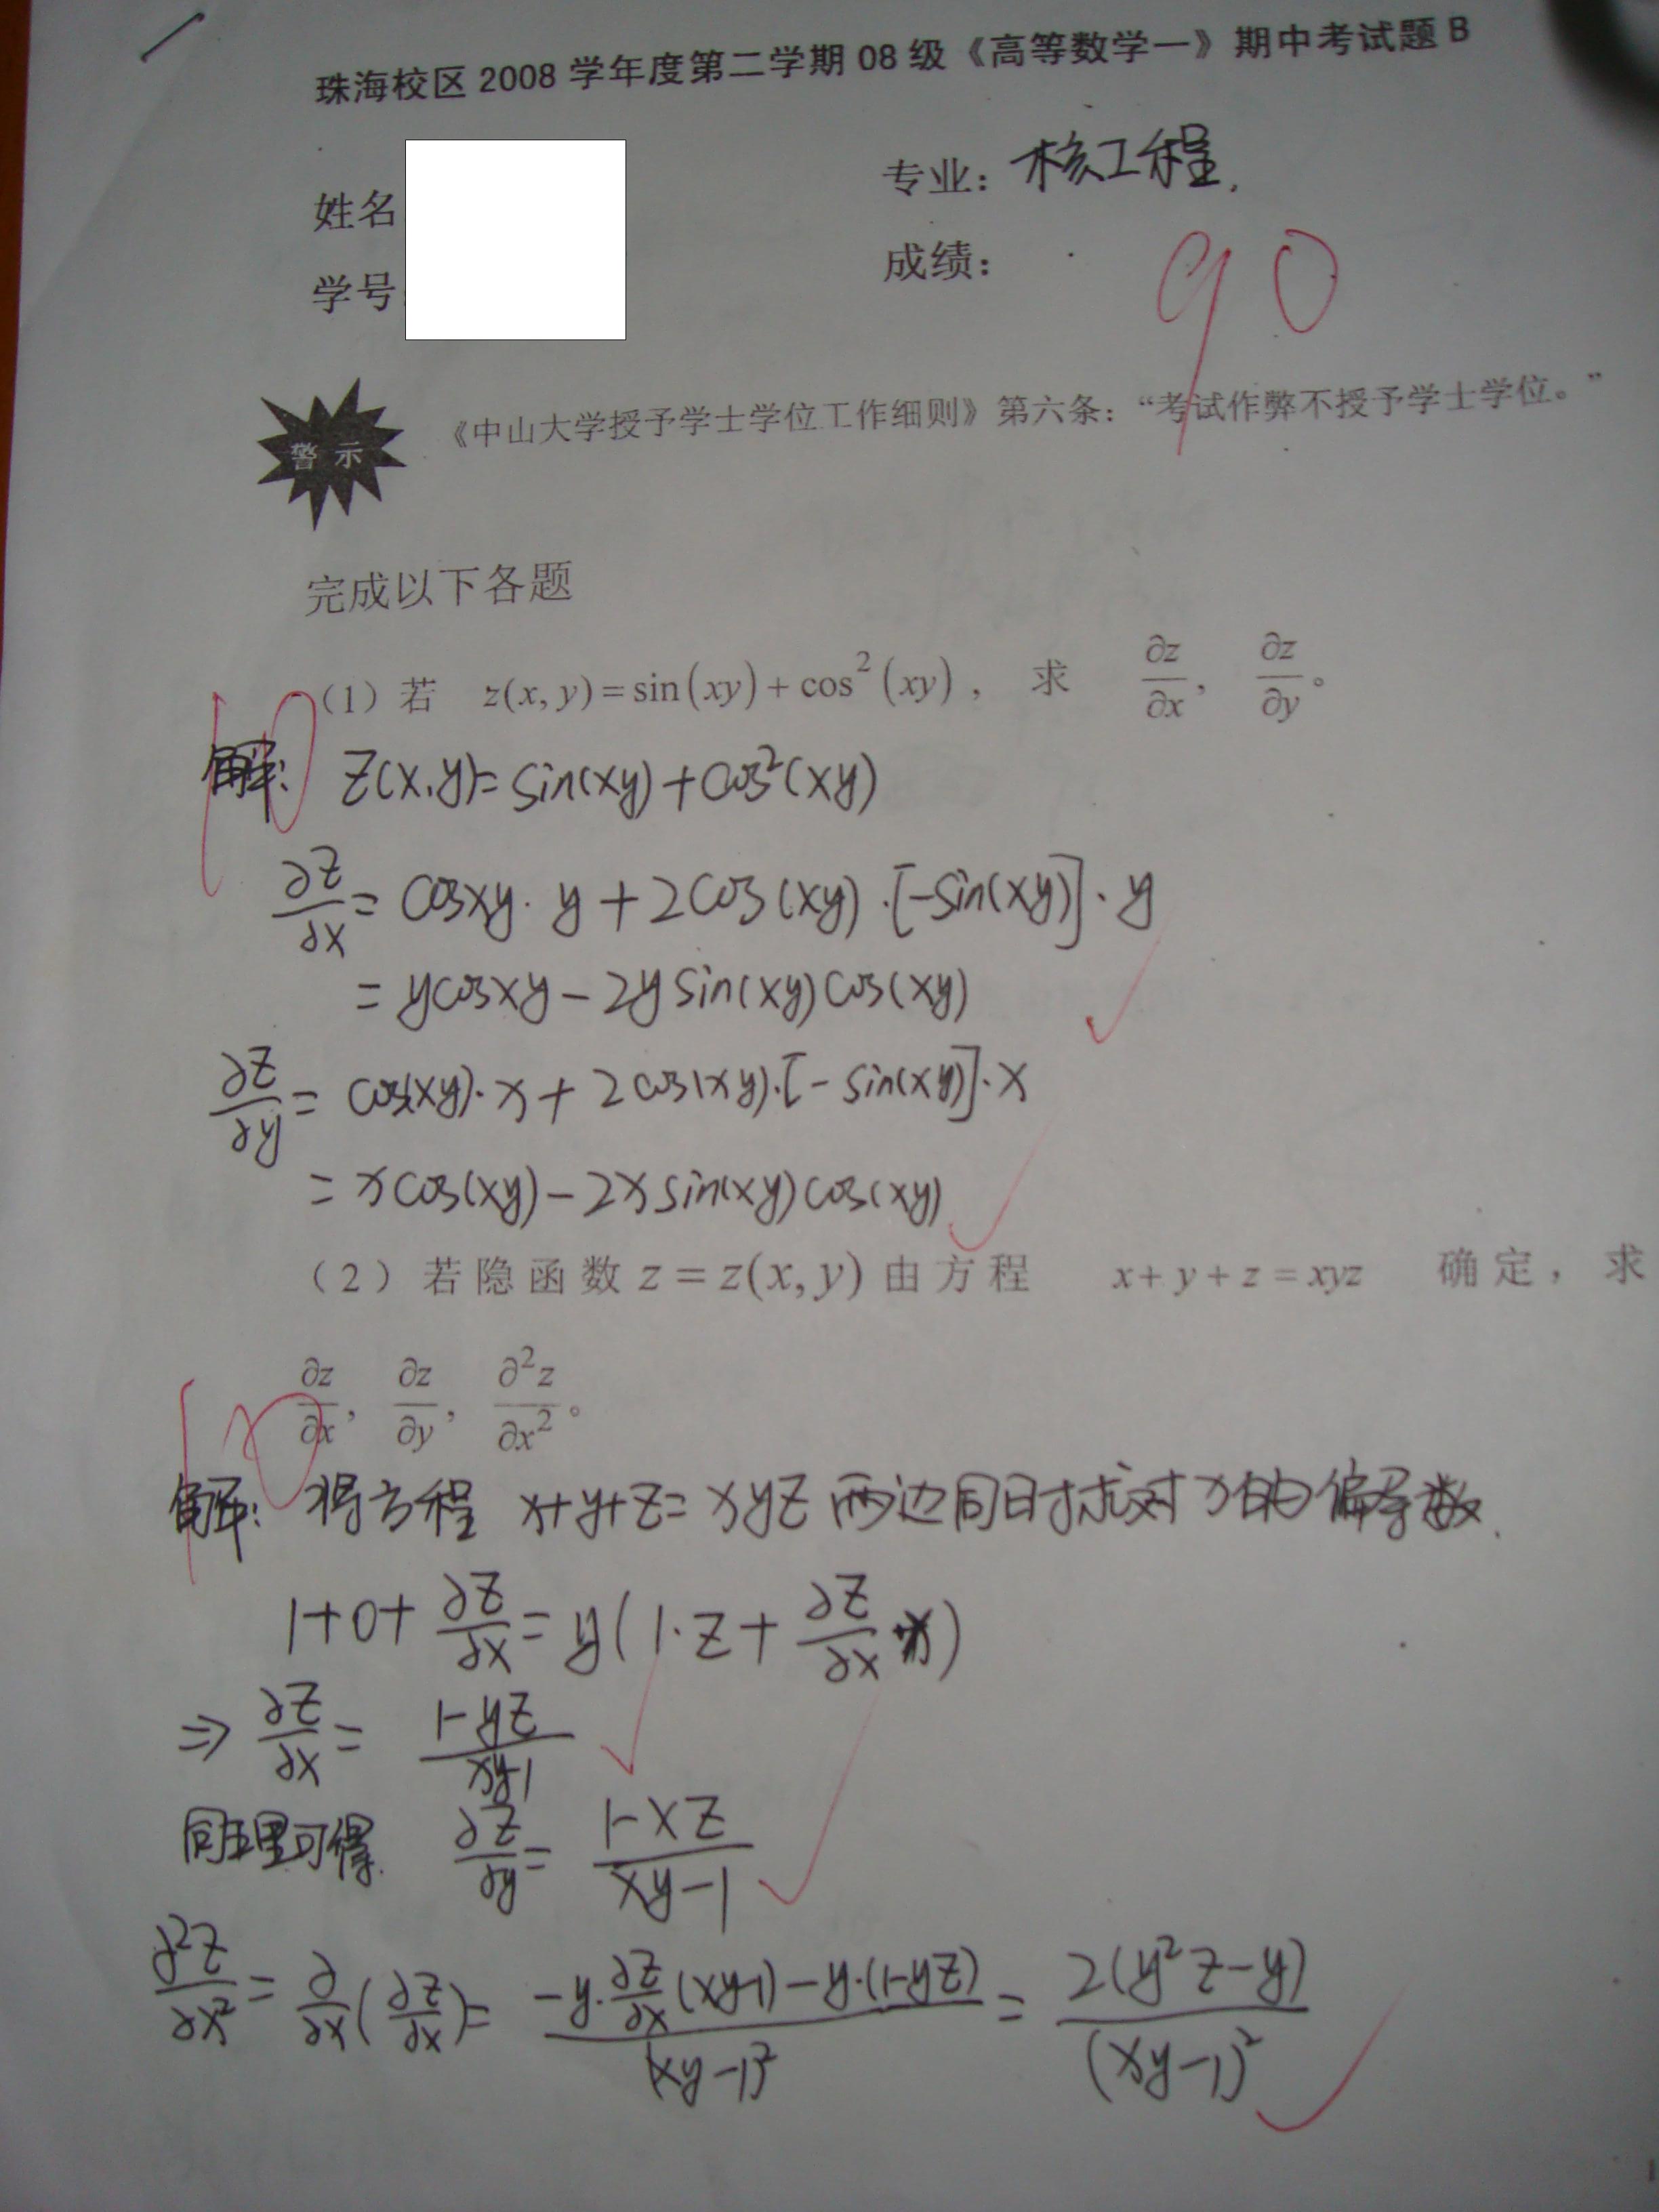 珠海校区 2008 学年度第二学期 08 级《高等数学一》期中考试题 B
姓名
专业：核工程.
学号：
成绩：
90
警 示
《中山大学授予学士学位工作细则》第六条：“考试作弊不授予学士学位。”
完成以下各题
10
（1）若 z(x, y) = sin(xy) + cos²(xy)， 求 ∂z/∂x， ∂z/∂y。
解： Z(x,y) = sin(xy) + cos²(xy)
∂z/∂x = cosxy · y + 2cos(xy) · [-sin(xy)] · y
= ycosxy - 2y sin(xy) cos(xy)
∂z/∂y = cos(xy) · x + 2cos(xy) · [-sin(xy)] · x
= x cos(xy) - 2x sin(xy) cos(xy)
（2）若隐函数 z = z(x, y) 由方程 x + y + z = xyz 确定，求
∂z/∂x， ∂z/∂y， ∂²z/∂x²。
10
解： 将方程 x+y+z = xyz 两边同时求对x的偏导数.
1+0+ ∂z/∂x = y(1·z + ∂z/∂x ·x)
⇒ ∂z/∂x = (1-yz)/(xy-1)
同理可得 ∂z/∂y = (1-xz)/(xy-1)
∂²z/∂x² = ∂/∂x (∂z/∂x) = [-y·∂z/∂x (xy-1) - y·(1-yz)]/(xy-1)² = 2(y²z-y)/(xy-1)²
1